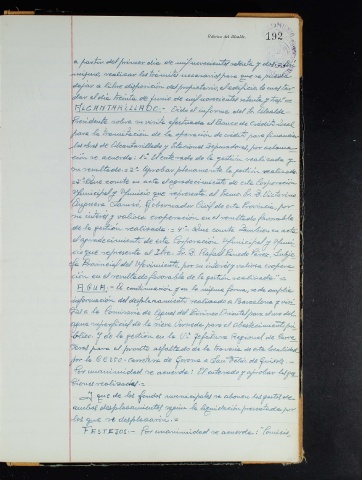 Número del Sello.
192
a partir del primer día de mil novecientos setenta y
realizar los trámites necesarios para que se pueda
dejar a libre disposición del propietario, el edificio
el día treinta de junio de mil novecientos setenta y
ALCANTARILLADO.- Dado el informe del Sr. Alcalde-
Presidente sobre su visita efectuada al Banco de Crédito Local,
para la tramitación de la operación de crédito para financiar
las obras de Alcantarillado y Estaciones Depuradoras, por aclama-
ción se acuerda: 1º El enterado de la gestión realizada y
su resultado.= 2º Aprobar plenamente la gestión realizada.
=3º Que conste en acta el agradecimiento de esta Corporación
Municipal y Municipio que representa al Excmo. Sr. D. Victorino
Anguera Sansó, Gobernador Civil de esta Provincia, por
su interés y valiosa cooperación en el resultado favorable
de la gestión realizada.= 4º Que conste también en acta
el agradecimiento de esta Corporación Municipal y Muni-
cipio que representa al Iltre. Sr. D. Rafael Ruiz de Pérez, Subje-
fe Provincial del Movimiento, por su interés y valiosa coopera-
ción en el resultado favorable de la gestión realizada.=
AGUA.- A continuación y en la misma forma, se da amplia
información del desplazamiento realizado a Barcelona y visi-
tas a la Comisaría de Aguas del Pirineo Oriental para el uso del
agua superficial de la riera para el abastecimiento pú-
blico. Y de la gestión en la Vª Jefatura Regional de Carre-
teras para el pronto asfaltado de la travesía de esta localidad
por la carretera de Gerona a San Feliu de Guixols.-
Por unanimidad se acuerda: El enterado y aprobar las ges-
tiones realizadas.=
Y que de los fondos municipales se abonen los gastos de
dichos desplazamientos según la liquidación presentada por
los que se desplazaron.=
FESTEJOS.- Por unanimidad se acuerda: